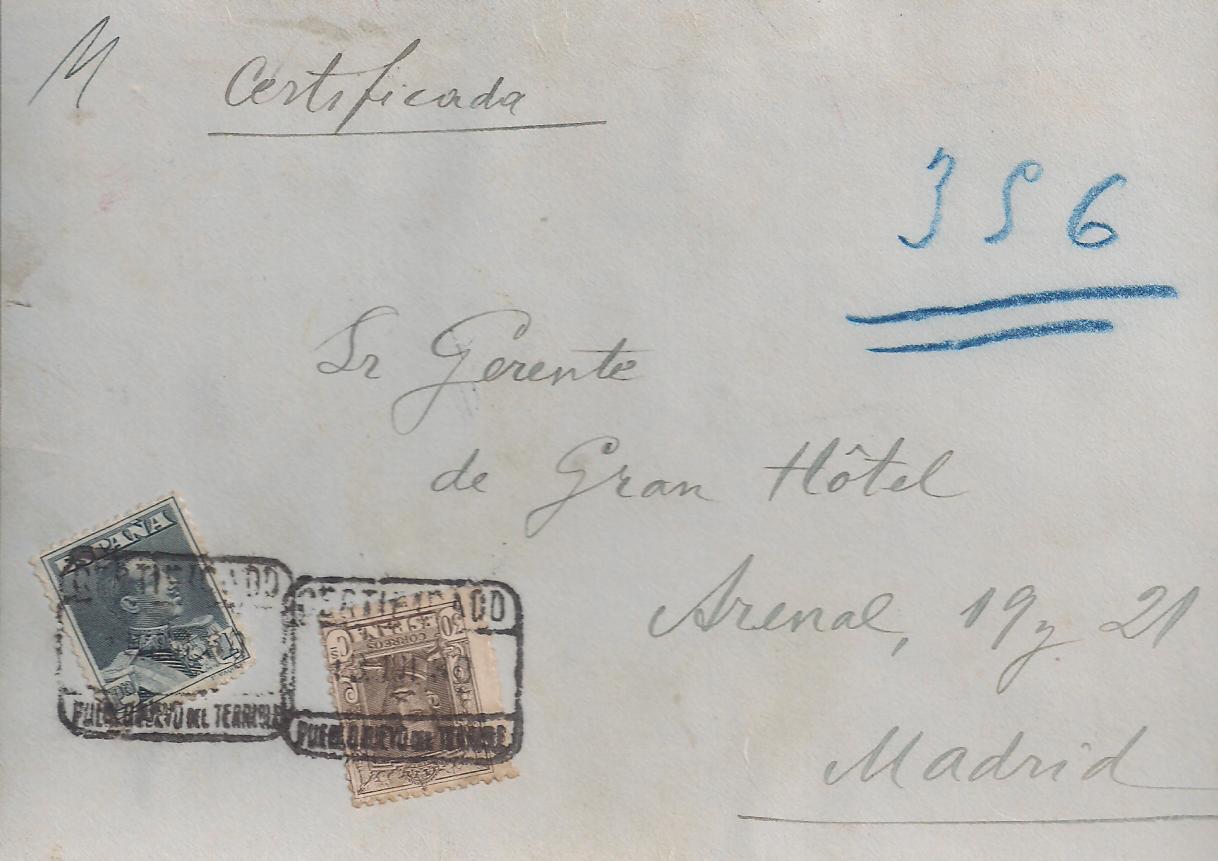 M Certificada
356
Sr Gerente
de Gran Hôtel
Arenal, 19 y 21
Madrid
ESPAÑA
CERTIFICADO
PUEBLONUEVO DEL TERRIBLE
CERTIFICADO
30 Cs
CORREOS
PUEBLONUEVO DEL TERRIBLE